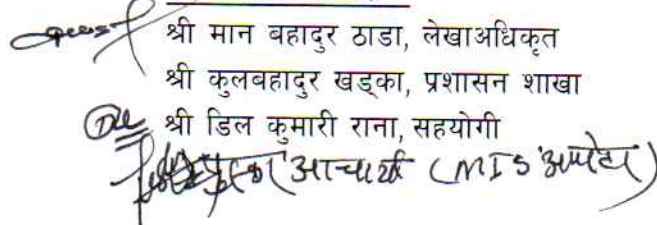 श्री मान बहादुर ठाडा, लेखाअधिकृत
श्री कुलबहादुर खड्का, प्रशासन शाखा
श्री डिल कुमारी राना, सहयोगी
आचार्य (MIS अपरेटर)